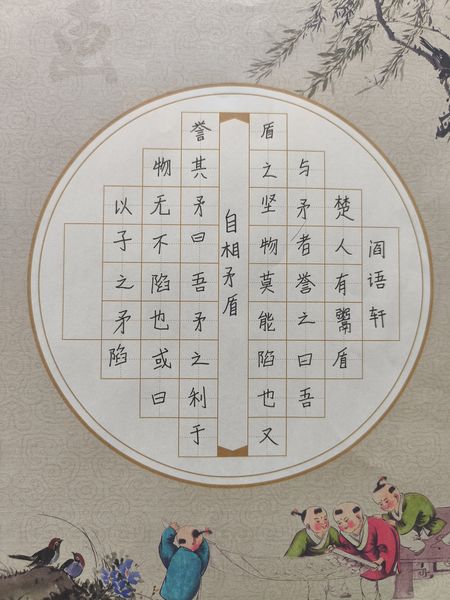 阎语轩
楚人有鬻盾
与矛者誉之曰吾
盾之坚物莫能陷也又
自相矛盾
誉其矛曰吾矛之利于
物无不陷也或曰
以子之矛陷